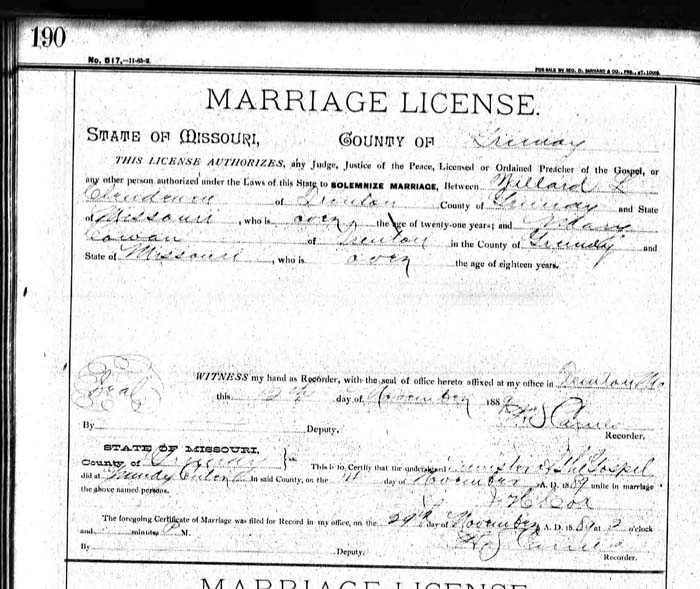 190
No. 517.—11-85-2.
FOR SALE BY GEO. D. BARNARD & CO., PRS., ST. LOUIS.
MARRIAGE LICENSE.
STATE OF MISSOURI, COUNTY OF Grundy
THIS LICENSE AUTHORIZES, any Judge, Justice of the Peace, Licensed or Ordained Preacher of the Gospel, or
any other person authorized under the Laws of this State to SOLEMNIZE MARRIAGE, Between Willard
of Trenton County of Grundy and State
of Missouri, who is over the age of twenty-one years; and Mary
Cowan of Trenton in the County of Grundy and
State of Missouri, who is over the age of eighteen years.
WITNESS my hand as Recorder, with the seal of office hereto affixed at my office in Trenton Mo
Seal
this day of November 188
By Deputy. Recorder.
STATE OF MISSOURI,
County of Grundy } This is to Certify that the undersigned minister of the Gospel
did at Grundy in said County, on the day of November A. D. 1889 unite in marriage
the above named persons. Cox
The foregoing Certificate of Marriage was filed for Record in my office, on the 29th day of November A. D. 1889 at 2 o'clock
and minutes P M.
By Deputy. Recorder.
MARRIAGE LICENSE